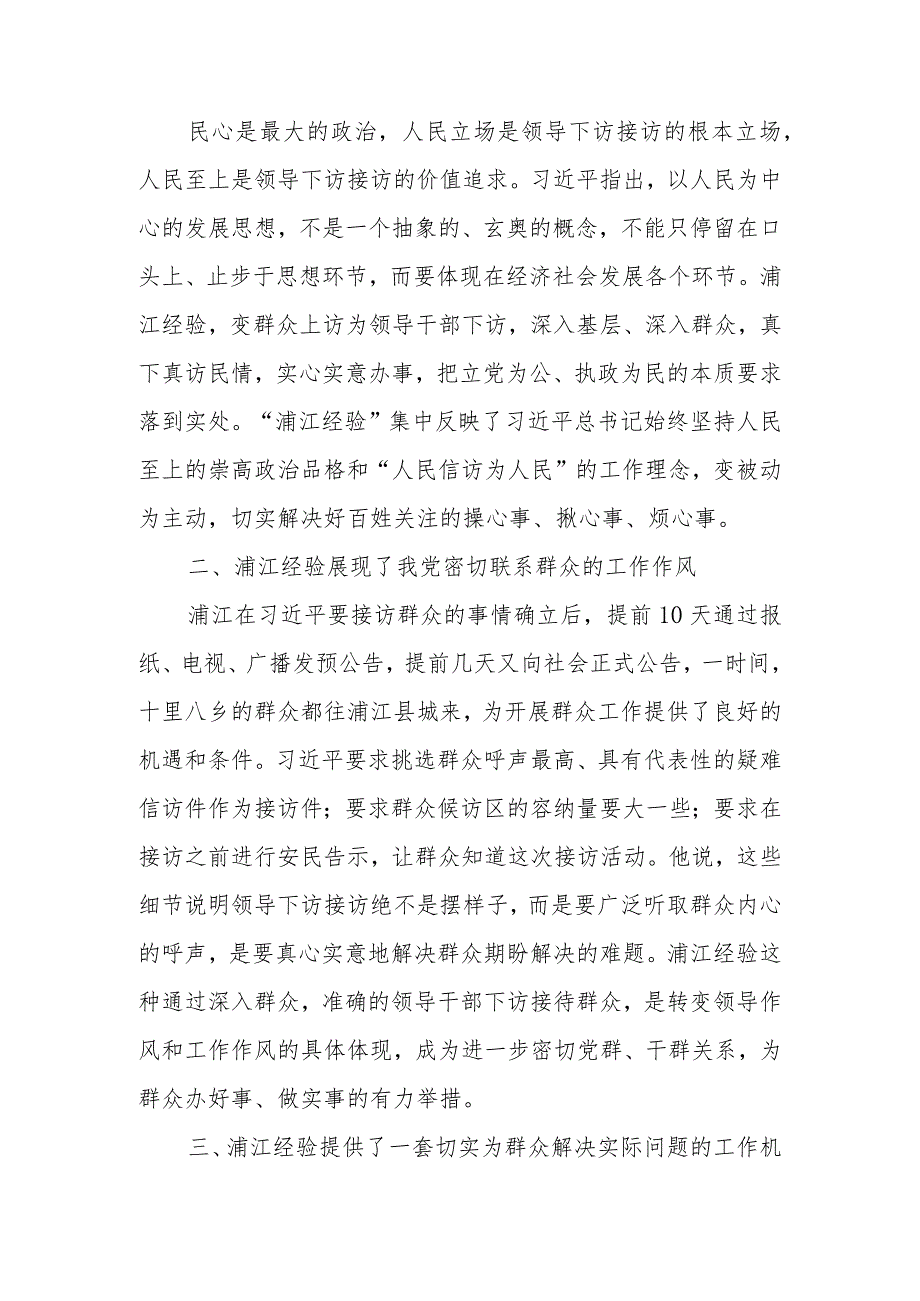 民心是最大的政治，人民立场是领导下访接访的根本立场，
人民至上是领导下访接访的价值追求。习近平指出，以人民为中
心的发展思想，不是一个抽象的、玄奥的概念，不能只停留在口
头上、止步于思想环节，而要体现在经济社会发展各个环节。浦
江经验，变群众上访为领导干部下访，深入基层、深入群众，真
下真访民情，实心实意办事，把立党为公、执政为民的本质要求
落到实处。“浦江经验”集中反映了习近平总书记始终坚持人民
至上的崇高政治品格和“人民信访为人民”的工作理念，变被动
为主动，切实解决好百姓关注的操心事、揪心事、烦心事。
二、浦江经验展现了我党密切联系群众的工作作风
浦江在习近平要接访群众的事情确立后，提前10天通过报
纸、电视、广播发预公告，提前几天又向社会正式公告，一时间，
十里八乡的群众都往浦江县城来，为开展群众工作提供了良好的
机遇和条件。习近平要求挑选群众呼声最高、具有代表性的疑难
信访件作为接访件；要求群众候访区的容纳量要大一些；要求在
接访之前进行安民告示，让群众知道这次接访活动。他说，这些
细节说明领导下访接访绝不是摆样子，而是要广泛听取群众内心
的呼声，是要真心实意地解决群众期盼解决的难题。浦江经验这
种通过深入群众，准确的领导干部下访接待群众，是转变领导作
风和工作作风的具体体现，成为进一步密切党群、干群关系，为
群众办好事、做实事的有力举措。
三、浦江经验提供了一套切实为群众解决实际问题的工作机